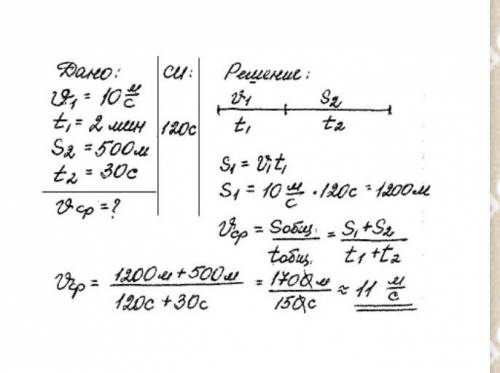 Дано:
υ₁ = 10 м/с
t₁ = 2 мин
S₂ = 500 м
t₂ = 30 с
υср = ?
СИ:
120с
Решение:
υ₁ S₂
t₁ t₂
S₁ = υ₁t₁
S₁ = 10 м/с • 120с = 1200 м
υср = Sобщ. / tобщ. = S₁ + S₂ / t₁ + t₂
υср = 1200 м + 500 м / 120с + 30с = 1700 м / 150 с ≈ 11 м/с